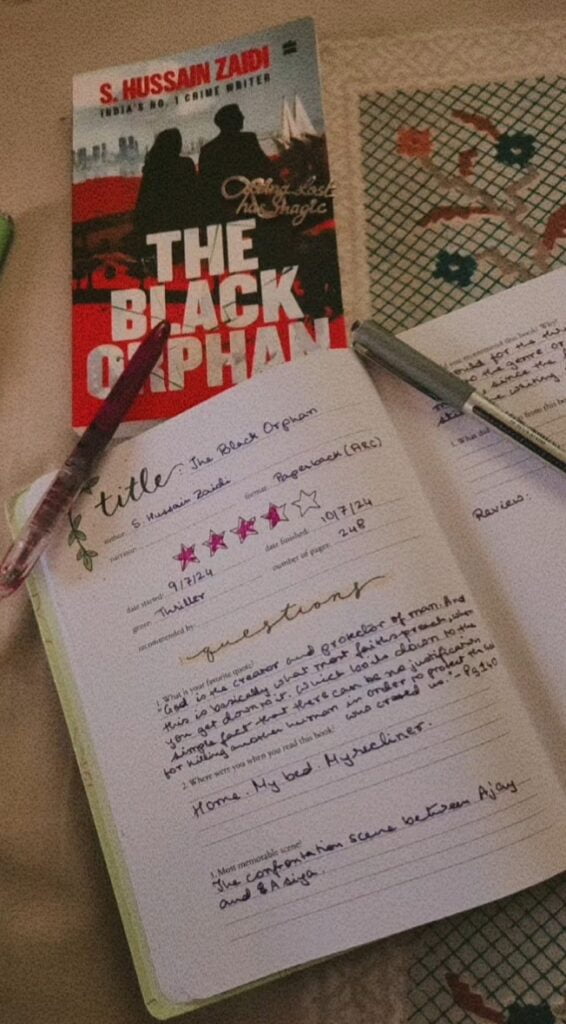 S. HUSSAIN ZAIDI
INDIA'S NO. 1 CRIME WRITER
THE
BLACK
ORPHAN
title: The Black Orphan
author: S. Hussain Zaidi format: Paperback (ARC)
narrator:
date started: 9/7/24 date finished: 10/7/24
genre: Thriller number of pages: 248
recommended by:
questions
1. What is your favorite quote?
"God is the creator and protector of man. And
this is basically what most faiths preach, when
you get down to it. Which boils down to the
simple fact that there can be no justification
for killing another human in order to protect the
was created us." - Pg 140
2. Where were you when you read this book?
Home. My bed. My recliner.
3. Most memorable scene?
The confrontation scene between Ajay
and Asiya.
recommend this book? Why?
for the
the genre or
since the
writing
from this
Review: